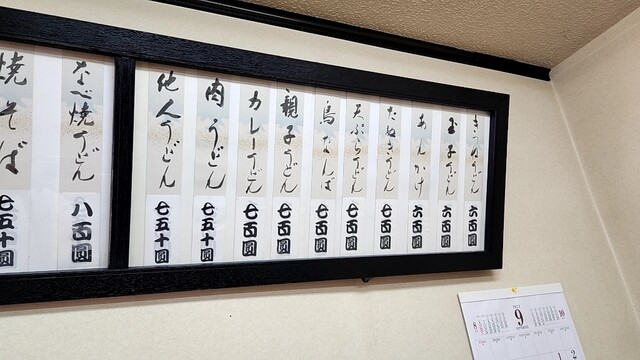 きつねうどん 六百圓
玉子うどん 六百圓
あんかけ 六百圓
たぬきうどん 七百圓
天ぷらうどん 七百圓
鳥なんば 七百圓
親子うどん 七百圓
カレーうどん 七百圓
肉うどん 七五十圓
他人うどん 七五十圓
なべ焼うどん 八百圓
焼そば 七五十圓
8
9
10
1 2